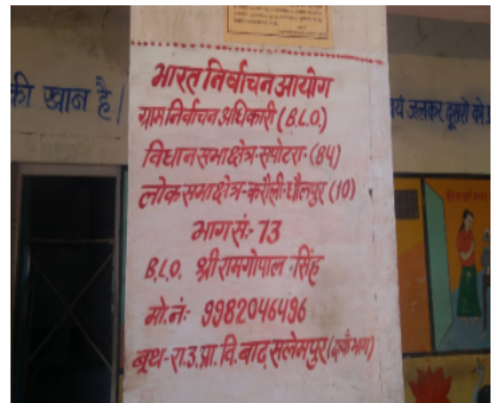 भारत निर्वाचन आयोग
ग्राम निर्वाचन अधिकारी (B.L.O.)
विधान सभा क्षेत्र-सपोटरा-(84)
लोक सभा क्षेत्र-करौली-धौलपुर (10)
भाग सं:- 73
B.L.O. श्री रामगोपाल सिंह
मो.नं:- 9982046496
बूथ- रा.उ.प्रा.वि. बाढ़ सलेमपुर (दायाँ भाग)
की खान है।
जलकर दूसरो को